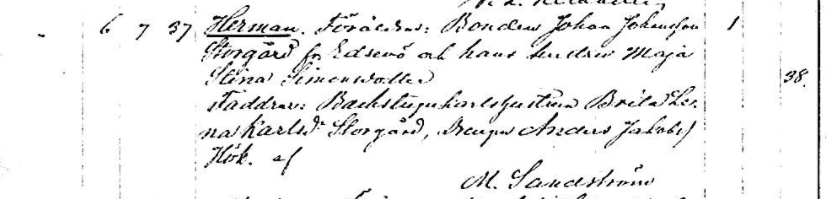 6 7 37 Herman. Föräldrar: Bonden Johan Johansson 1
Storgård fr Edsevö och hans hustru Maja
Stina Simonsdotter
38.
Faddrar: Backstugukarlshustrun Brita Le-
na Karlsdr Storgård, Drengen Anders Jakobs)
Hök. af
M. Sandström